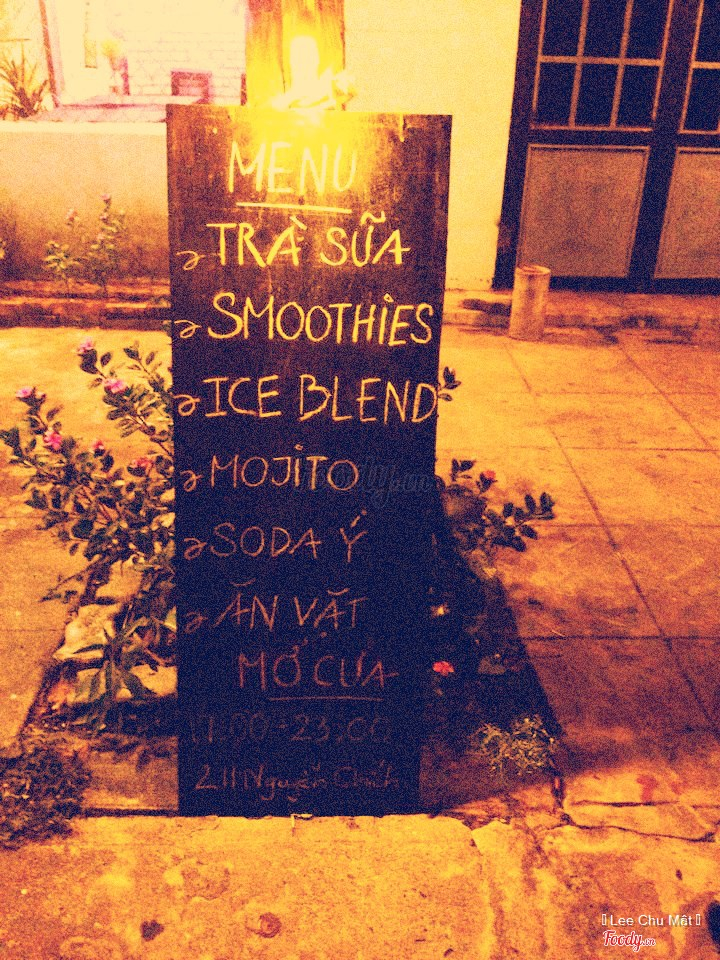 MENU
TRÀ SỮA
SMOOTHIES
ICE BLEND
MOJITO
SODA Ý
ĂN VẶT
MỞ CỬA
:00-23:00
211 Nguyễn Chính
Lee Chu Mật
Foody.vn